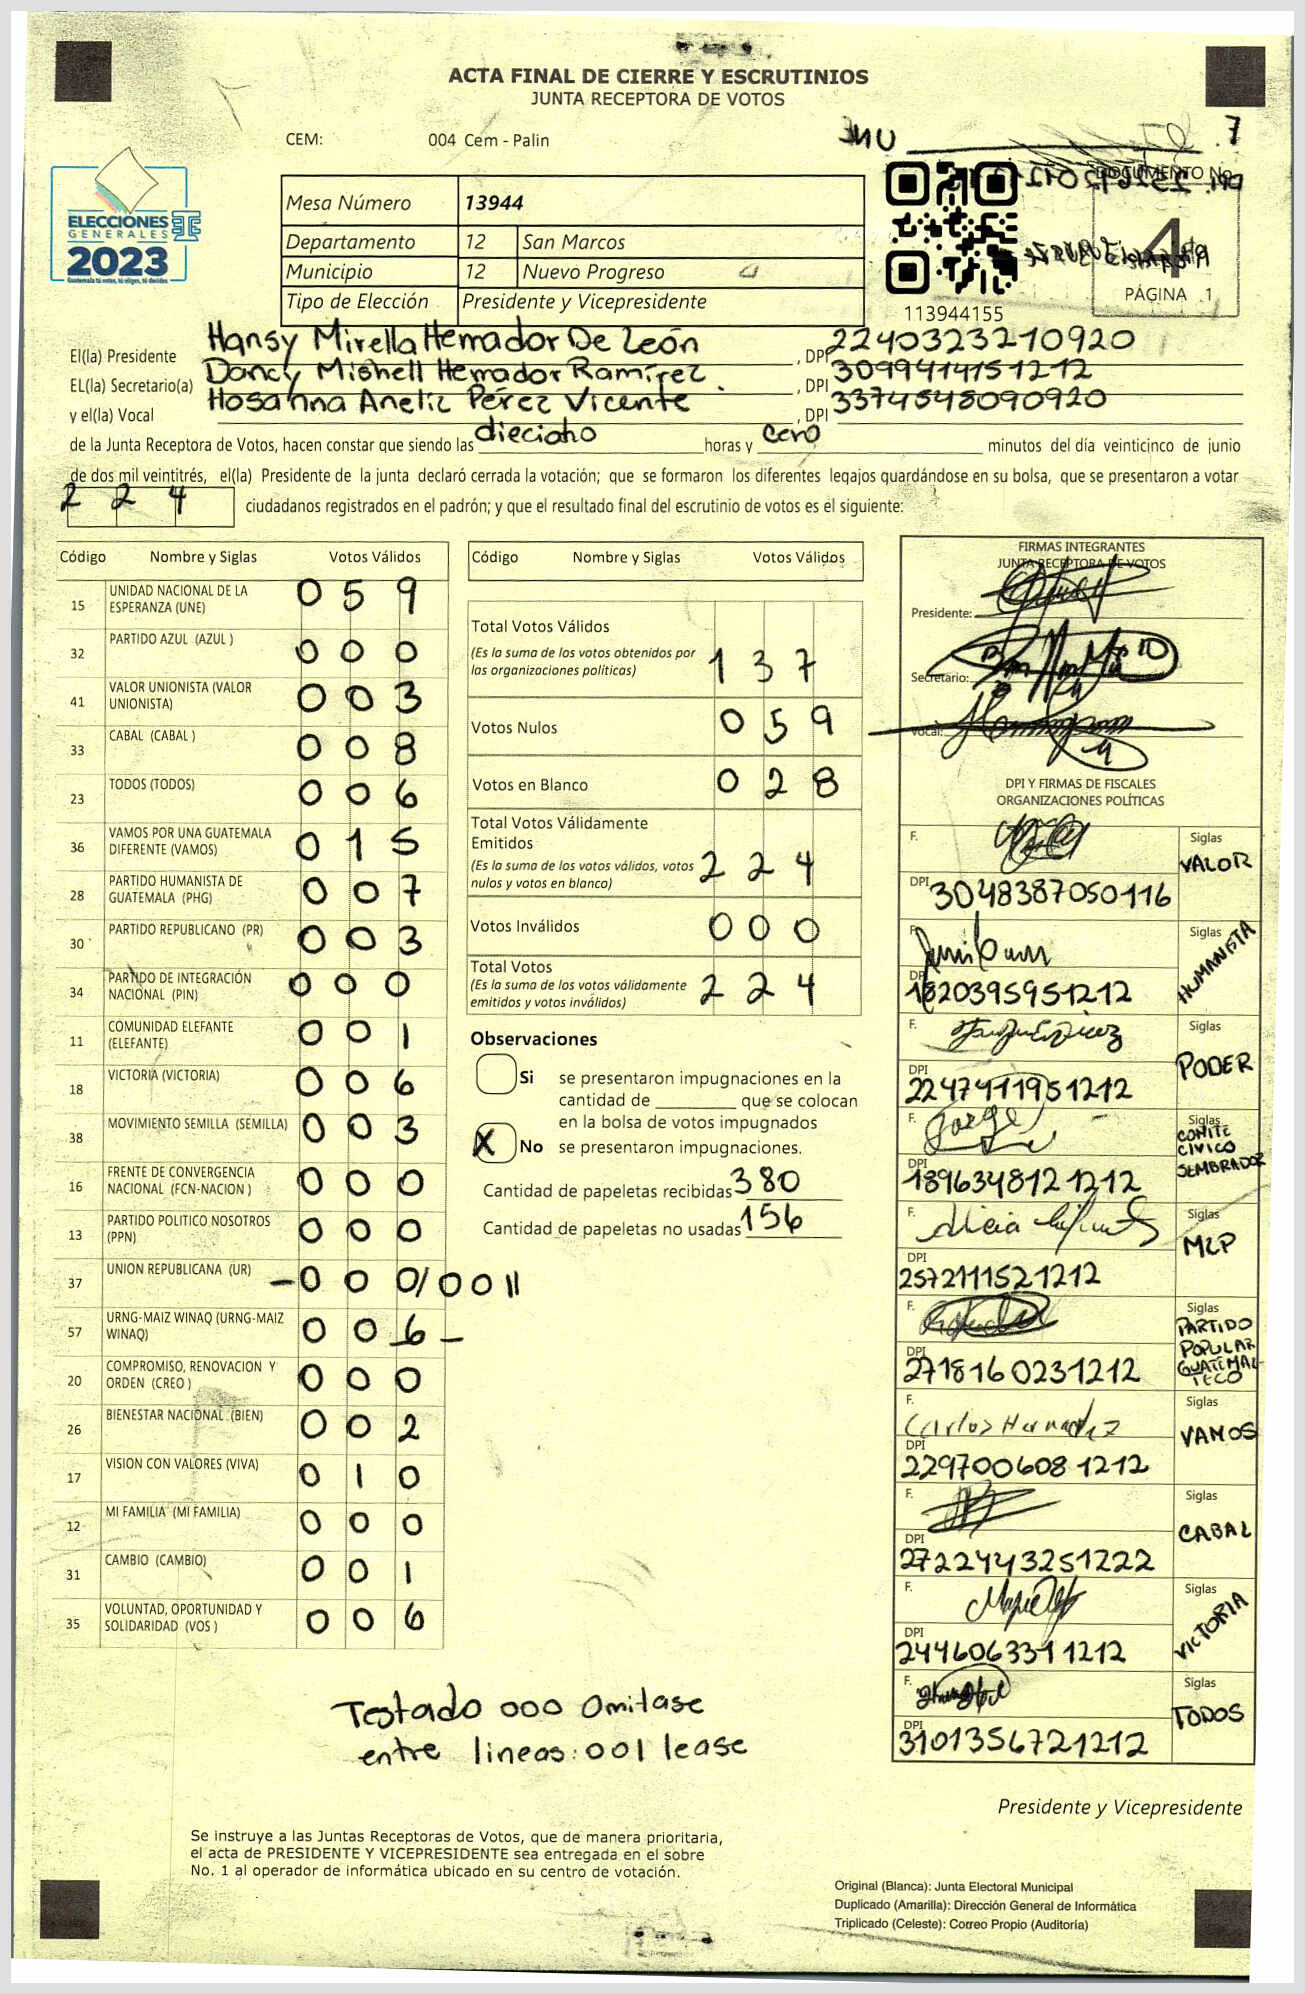 ACTA FINAL DE CIERRE Y ESCRUTINIOS
JUNTA RECEPTORA DE VOTOS
CEM: 004 Cem - Palin
7
ELECCIONES
GENERALES
2023
Guatemala tú votas, tú eliges, tú decides
Mesa Número 13944
Departamento 12 San Marcos
Municipio 12 Nuevo Progreso
Tipo de Elección Presidente y Vicepresidente
DOCUMENTO No.
4
PÁGINA 1
113944155
El(la) Presidente Hansy Mirella Hernador De León, DPI 2240323210920
EL(la) Secretario(a) Dancy Mishell Hernador Ramírez, DPI 3099414151212
y el(la) Vocal Hosanna Aneliz Pérez Vicente, DPI 3374548090920
de la Junta Receptora de Votos, hacen constar que siendo las dieciocho horas y cero minutos del día veinticinco de junio
de dos mil veintitrés, el(la) Presidente de la junta declaró cerrada la votación; que se formaron los diferentes legajos guardándose en su bolsa, que se presentaron a votar
224 ciudadanos registrados en el padrón; y que el resultado final del escrutinio de votos es el siguiente:
Código Nombre y Siglas Votos Válidos
15 UNIDAD NACIONAL DE LA ESPERANZA (UNE) 059
32 PARTIDO AZUL (AZUL ) 000
41 VALOR UNIONISTA (VALOR UNIONISTA) 003
33 CABAL (CABAL ) 008
23 TODOS (TODOS) 006
36 VAMOS POR UNA GUATEMALA DIFERENTE (VAMOS) 015
28 PARTIDO HUMANISTA DE GUATEMALA (PHG) 007
30 PARTIDO REPUBLICANO (PR) 003
34 PARTIDO DE INTEGRACIÓN NACIONAL (PIN) 000
11 COMUNIDAD ELEFANTE (ELEFANTE) 001
18 VICTORIA (VICTORIA) 006
38 MOVIMIENTO SEMILLA (SEMILLA) 003
16 FRENTE DE CONVERGENCIA NACIONAL (FCN-NACION ) 000
13 PARTIDO POLITICO NOSOTROS (PPN) 000
37 UNION REPUBLICANA (UR) -000/001/
57 URNG-MAIZ WINAQ (URNG-MAIZ WINAQ) 006-
20 COMPROMISO, RENOVACION Y ORDEN (CREO ) 000
26 BIENESTAR NACIONAL (BIEN) 002
17 VISION CON VALORES (VIVA) 010
12 MI FAMILIA (MI FAMILIA) 000
31 CAMBIO (CAMBIO) 001
35 VOLUNTAD, OPORTUNIDAD Y SOLIDARIDAD (VOS ) 006
Código Nombre y Siglas Votos Válidos
Total Votos Válidos 137
(Es la suma de los votos obtenidos por
las organizaciones políticas)
Votos Nulos 059
Votos en Blanco 028
Total Votos Válidamente
Emitidos 224
(Es la suma de los votos válidos, votos
nulos y votos en blanco)
Votos Inválidos 000
Total Votos 224
(Es la suma de los votos válidamente
emitidos y votos inválidos)
Observaciones
Si se presentaron impugnaciones en la
cantidad de ________ que se colocan
en la bolsa de votos impugnados
X No se presentaron impugnaciones.
Cantidad de papeletas recibidas 380
Cantidad de papeletas no usadas 156
FIRMAS INTEGRANTES
JUNTA RECEPTORA DE VOTOS
Presidente:
Secretario:
Vocal:
DPI Y FIRMAS DE FISCALES
ORGANIZACIONES POLÍTICAS
F. Siglas VALOR
DPI 3048387050116
F. Siglas HUMANISTA
DPI 1820395951212
F. Siglas PODER
DPI 2247411951212
F. Jorge Siglas COMITE CIVICO SEMBRADOR
DPI 1896348121212
F. Alicia Siglas MLP
DPI 2572111521212
F. Siglas PARTIDO POPULAR GUATEMALTECO
DPI 2718160231212
F. Carlos Hernadez Siglas VAMOS
DPI 2297006081212
F. Siglas CABAL
DPI 2722443251222
F. Siglas VICTORIA
DPI 2446063311212
F. Siglas TODOS
DPI 3101356721212
Testado 000 Omitase
entre lineas: 001 lease
Presidente y Vicepresidente
Se instruye a las Juntas Receptoras de Votos, que de manera prioritaria,
el acta de PRESIDENTE Y VICEPRESIDENTE sea entregada en el sobre
No. 1 al operador de informática ubicado en su centro de votación.
Original (Blanca): Junta Electoral Municipal
Duplicado (Amarilla): Dirección General de Informática
Triplicado (Celeste): Correo Propio (Auditoría)